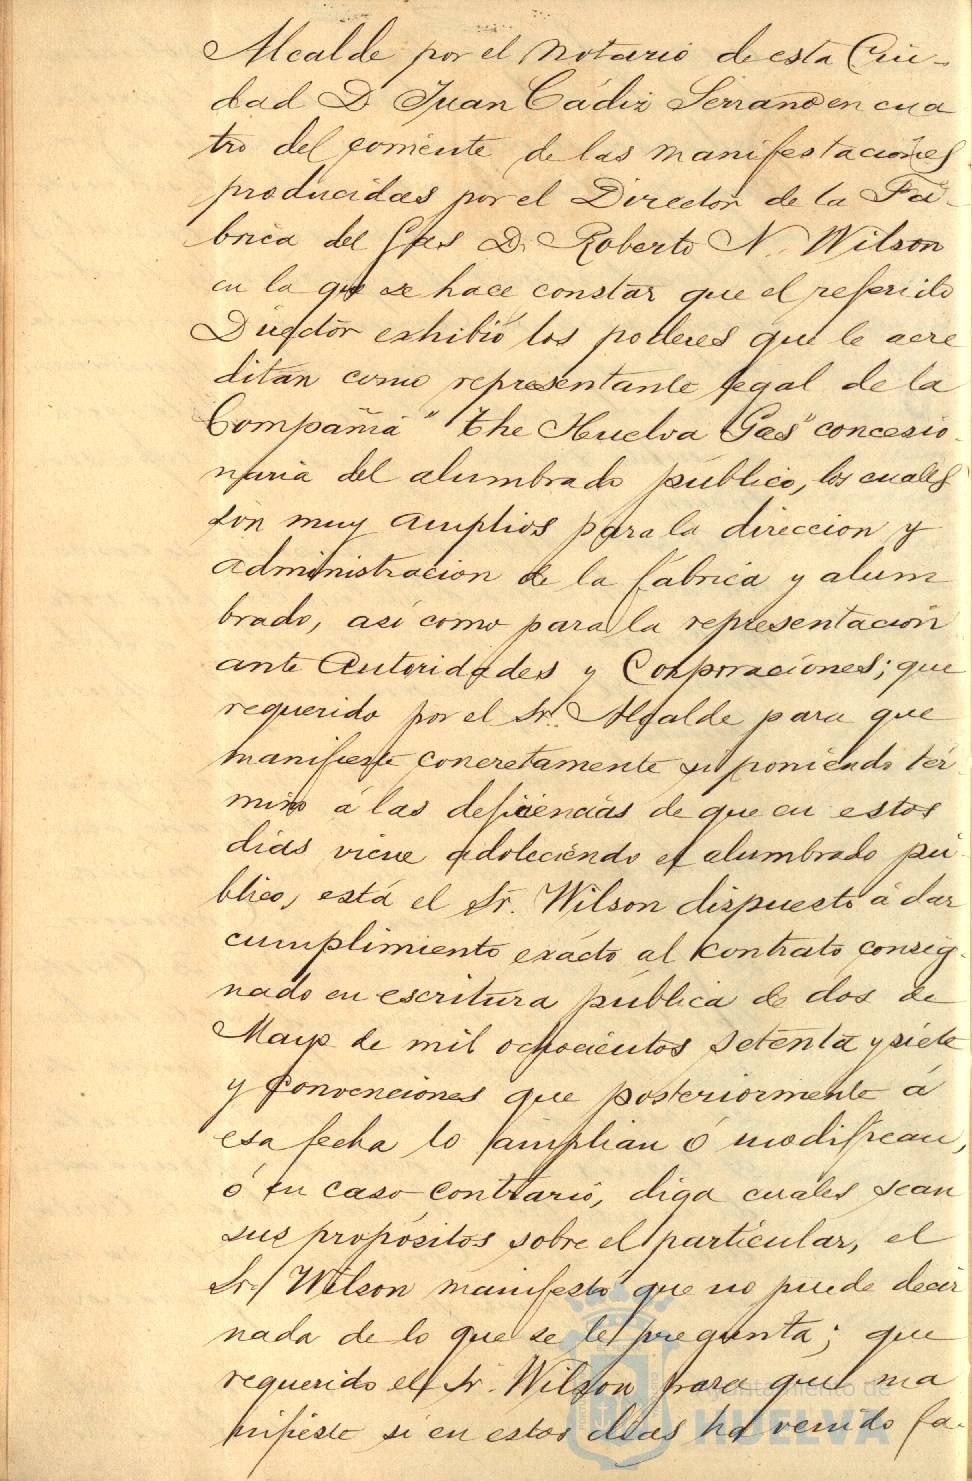 Alcalde por el Notario de esta Ciu-
dad D Juan Cádiz Serrano en cua
tro del corriente de las manifestaciones
producidas por el Director de la Fá-
brica del Gas D. Roberto N. Wilson
en la que se hace constar que el referido
Director exhibió los poderes que le acre
ditan como representante legal de la
Compañia "The Huelva Gas" concesio-
naria del alumbrado público, los cuales
son muy amplios para la direccion y
administracion de la fábrica y alum
brado, así como para la representacion
ante Autoridades y Corporaciones; que
requerido por el Sr. Alcalde para que
manifieste concretamente si poniendo tér-
mino á las deficiencias de que en estos
dias viene adoleciendo el alumbrado pú-
blico, está el Sr. Wilson dispuesto á dar
cumplimiento exacto al contrato consig-
nado en escritura pública de dos de
Mayo de mil ochocientos setenta y siete
y convenciones que posteriormente á
esa fecha lo amplian ó modifican,
ó en caso contrario, diga cuáles sean
sus propósitos sobre el particular, el
Sr. Wilson manifestó que no puede decir
nada de lo que se le pregunta; que
requerido el Sr. Wilson para que ma
nifieste si en estos dias ha venido fa-
Ayuntamiento de
HUELVA